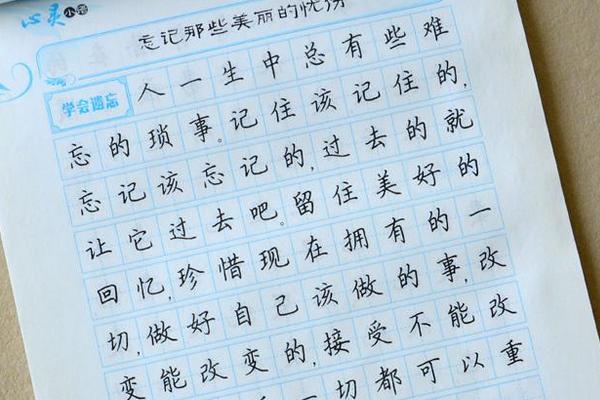 心灵
忘记那些美丽的忧伤
学会遗忘
人一生中总有些难
忘的琐事。记住该记住的,
忘记该忘记的,过去的就
让它过去吧。留住美好的
回忆,珍惜现在拥有的一
切,做好自己该做的事,改
变能改变的,接受不能改
一切都可以重